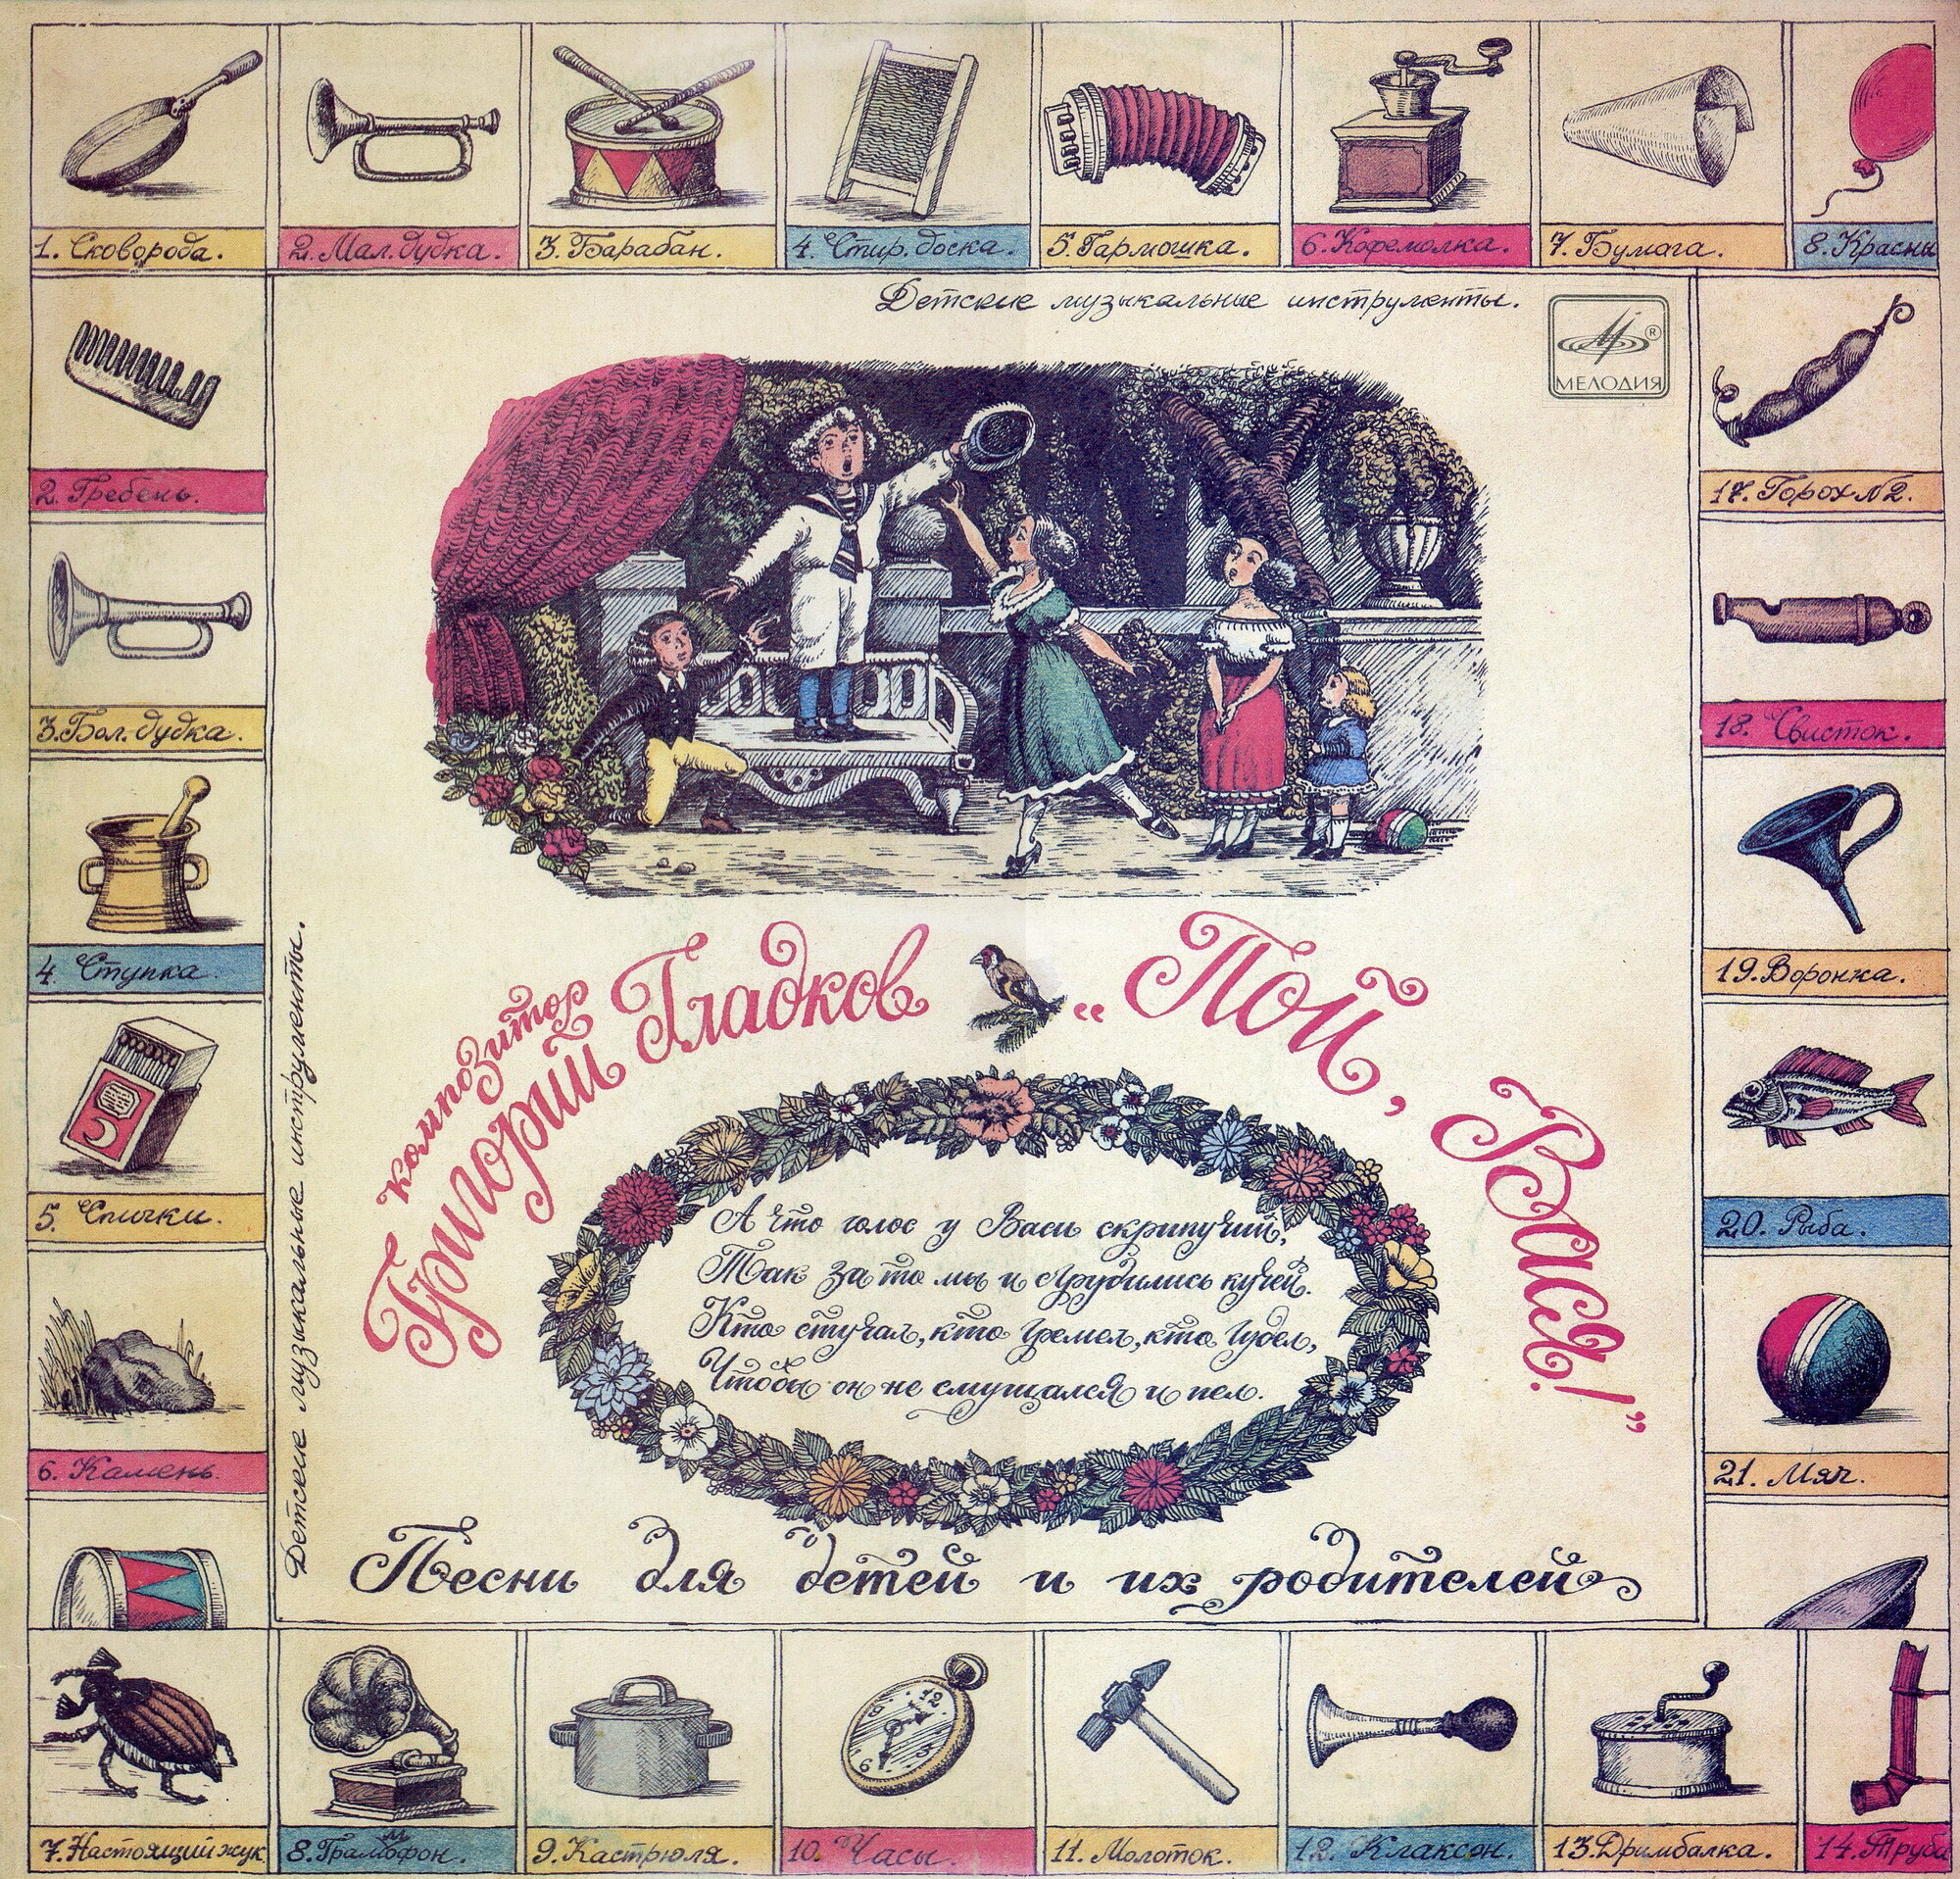 1. Сковорода.
2. Мал. дудка.
3. Барабан.
4. Стир. доска.
5. Гармошка.
6. Кофемолка.
7. Бумага.
8. Красны
Детские музыкальные инструменты.
МЕЛОДИЯ
2. Гребень.
3. Бол. дудка.
4. Ступка.
5. Спички.
6. Камень.
Детские музыкальные инструменты.
17. Горох №2.
18. Свисток.
19. Воронка.
20. Рыба.
21. Мяч.
композитор
Григорий Гладков
„Пой, Вася!”
А что голос у Васи скрипучий,
Так за то мы и сгрудились кучей.
Кто стучал, кто гремел, кто гудел,
Чтобы он не смущался и пел.
Песни для детей и их родителей
7. Настоящий жук
8. Граммофон.
9. Кастрюля.
10. Часы.
11. Молоток.
12. Клаксон.
13. Дрымбалка.
14. Труба